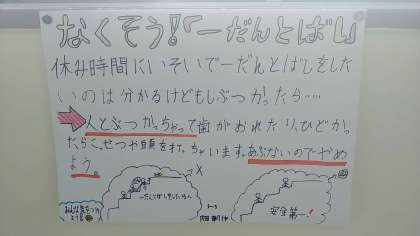 なくそう!「一だんとばし」
休み時間にいそいで一だんとばしをした
いのは分かるけどもしぶつかったら‥‥
人とぶつかっちゃって歯がおれたり、ひどかっ
たらこっせつや頭を打っちゃいます。あぶないのでやめ
よう。
一だんとばしをしている人
安全第一!